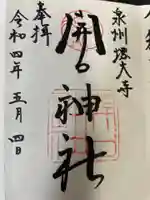 泉州 堺大寺
開口神社
奉拝
令和四年 五月 四日